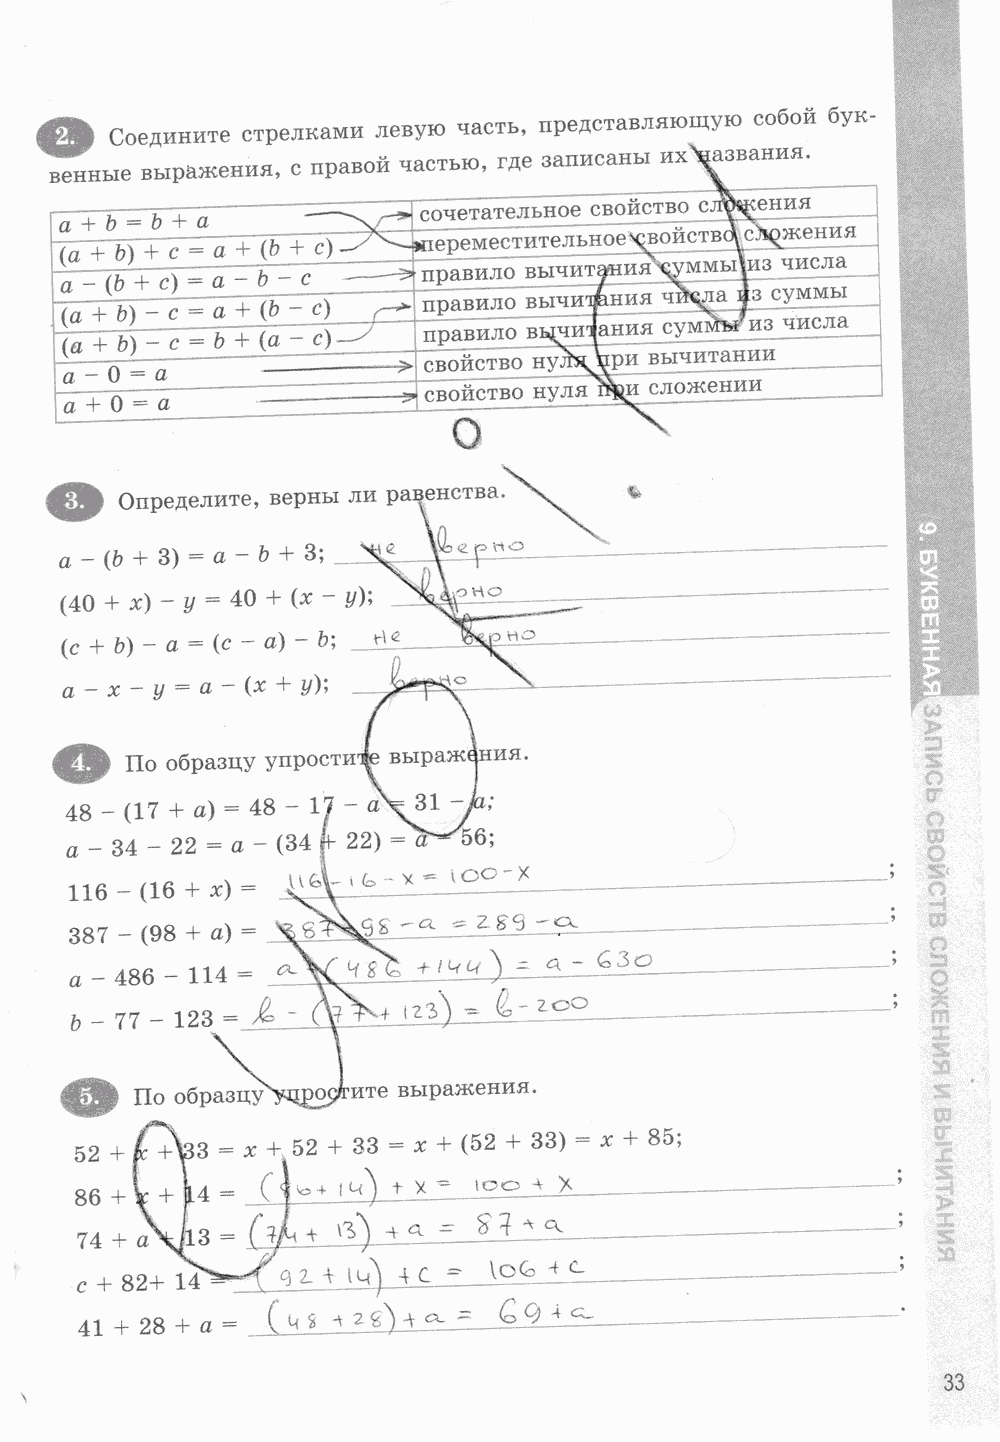 2. Соедините стрелками левую часть, представляющую собой бук-
венные выражения, с правой частью, где записаны их названия.
a + b = b + a сочетательное свойство сложения
(a + b) + c = a + (b + c) переместительное свойство сложения
a − (b + c) = a − b − c правило вычитания суммы из числа
(a + b) − c = a + (b − c) правило вычитания числа из суммы
(a + b) − c = b + (a − c) правило вычитания суммы из числа
a − 0 = a свойство нуля при вычитании
a + 0 = a свойство нуля при сложении
3. Определите, верны ли равенства.
a − (b + 3) = a − b + 3; не верно
(40 + x) − y = 40 + (x − y); верно
(c + b) − a = (c − a) − b; не верно
a − x − y = a − (x + y); верно
4. По образцу упростите выражения.
48 − (17 + a) = 48 − 17 − a = 31 − a;
a − 34 − 22 = a − (34 + 22) = a − 56;
116 − (16 + x) = 116 − 16 − x = 100 − x ;
387 − (98 + a) = 387 − 98 − a = 289 − a ;
a − 486 − 114 = a − (486 + 144) = a − 630 ;
b − 77 − 123 = b − (77 + 123) = b − 200 ;
5. По образцу упростите выражения.
52 + x + 33 = x + 52 + 33 = x + (52 + 33) = x + 85;
86 + x + 14 = (86 + 14) + x = 100 + x ;
74 + a + 13 = (74 + 13) + a = 87 + a ;
c + 82+ 14 = (92 + 14) + c = 106 + c ;
41 + 28 + a = (48 + 28) + a = 69 + a .
9. БУКВЕННАЯ ЗАПИСЬ СВОЙСТВ СЛОЖЕНИЯ И ВЫЧИТАНИЯ
33